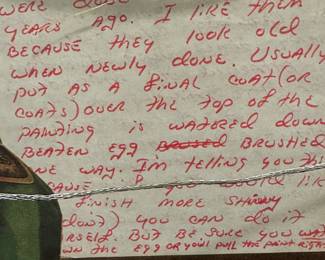 WERE DONE
YEARS AGO. I LIKE THEM
BECAUSE THEY LOOK OLD
WHEN NEWLY DONE. USUALLY
PUT AS A FINAL COAT(OR
COATS) OVER THE TOP OF THE
PAINTING IS WATERED DOWN
BEATEN EGG BRUSHED
ONE WAY. I'M TELLING YOU THIS
CAUSE YOU WOULD LIKE
FINISH MORE SHINY
(DON'T) YOU CAN DO IT
RSELF. BUT BE SURE YOU WATER
WN THE EGG OR YOU'LL PULL THE PAINT RIGHT